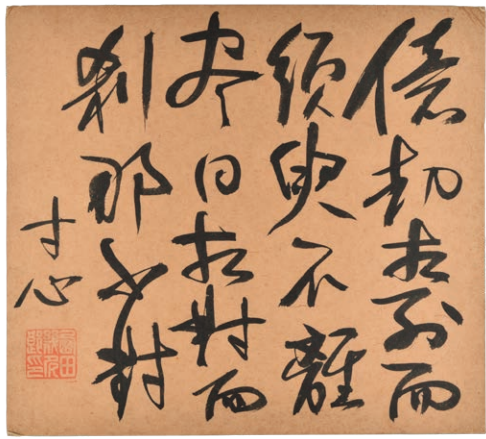 億劫相別而
須臾不離
尽日相対而
刹那不対
寸心